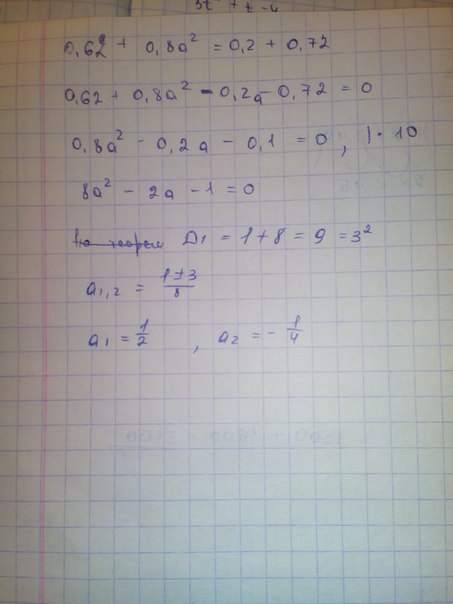 3t² + t - 4
0,62 + 0,8a² = 0,2 + 0,72
0,62 + 0,8a² - 0,2a - 0,72 = 0
0,8a² - 0,2a - 0,1 = 0, | · 10
8a² - 2a - 1 = 0
D₁ = 1 + 8 = 9 = 3²
a₁,₂ = (1 ± 3)/8
a₁ = 1/2 , a₂ = - 1/4